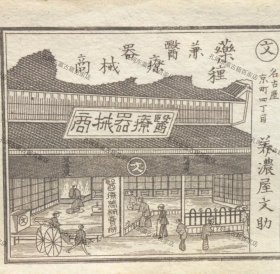 藥種
兼醫療器械商
㊛
名古屋
京町四丁目
美濃屋文助
醫療器械商
文